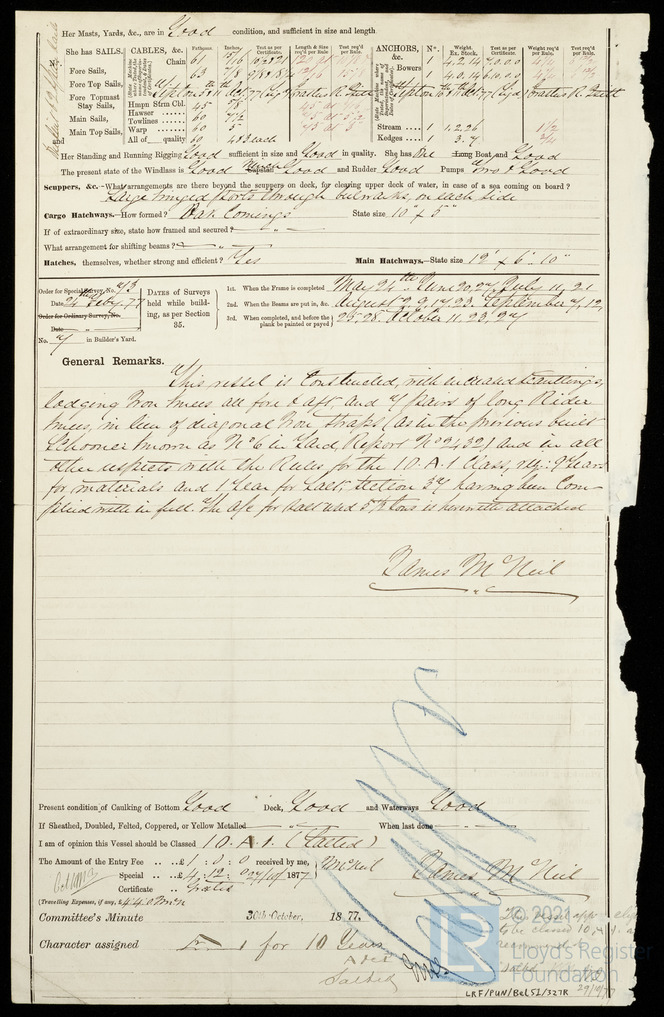 Her Masts, Yards, &c., are in Good condition, and sufficient in size and length
She has SAILS.
CABLES, &c.
Fathoms.
Inches
Test as per Certificate.
Length & Size req'd per Rule
Test req'd per Rule.
ANCHORS, &c.
N°.
Weight Ex. Stock.
Test as per Certificate.
Weight req'd per Rule.
Test req'd per Rule.
Fore Sails,
Chain 61 15/16
Bowers
Fore Top Sails,
63 7/8
Fore Topmast Stay Sails,
Hmpn Strm Cbl. 45
Main Sails,
Hawser 60 7½
Towlines
Main Top Sails,
Warp 60 5
Stream 1 1.2.26 1½
and
All of quality 60 4½ 3 each
Kedges 1 3.7 ¾
Her Standing and Running Rigging Good sufficient in size and Good in quality. She has One Long Boat and Good
The present state of the Windlass is Good Capstan Good and Rudder Good Pumps Two & Good
Scuppers, &c.—What arrangements are there beyond the scuppers on deck, for clearing upper deck of water, in case of a sea coming on board?
Large hinged ports through bulwarks, on each side
Cargo Hatchways.—How formed? Oak Comings State size 10' x 5"
If of extraordinary size, state how framed and secured?
What arrangement for shifting beams?
Hatches, themselves, whether strong and efficient? Yes Main Hatchways.—State size 12' x 6'.10"
Order for Special Survey No. 43
Date 24th Feby. 77
Order for Ordinary Survey, No.
Date
No. 7 in Builder's Yard.
DATES of Surveys held while building, as per Section 35.
1st. When the Frame is completed May 24th June 20, 27 July 11, 21
2nd. When the Beams are put in, &c. August 2, 9, 17, 23. September 7, 12,
3rd. When completed, and before the plank be painted or payed 25, 28. October 11, 23, 27
General Remarks.
This vessel is constructed, with increased scantlings,
lodging Iron knees all fore & aft, and 7 pairs of long Rider
knees, in lieu of diagonal Iron straps (as in the previous built
Schooner known as No 6 in Yard, Report No 2432) and in all
other respects with the Rules for the 10.A.1 Class, viz: 9 Years
for materials and 1 Year for Salt, Section 37 having been Com-
plied with in full. The a/c for Salt used 5½ tons is herewith attached
James McNeil
Present condition of Caulking of Bottom Good Deck, Good and Waterways Good
If Sheathed, Doubled, Felted, Coppered, or Yellow Metalled When last done
I am of opinion this Vessel should be Classed 10.A.1. (Salted)
The Amount of the Entry Fee .. £1 : 0 : 0 received by me, J McNeil
Special .. £4 : 12 : 0 27/10/1877
James McNeil
Certificate .. Gratis
(Travelling Expenses, if any, £4.4.0
Committee's Minute 30th October, 1877.
Character assigned 1 for 10 Years
Salted
© 2021
LR
Lloyd's Register Foundation
LRF/PUN/Bel51/327R
29/10/77